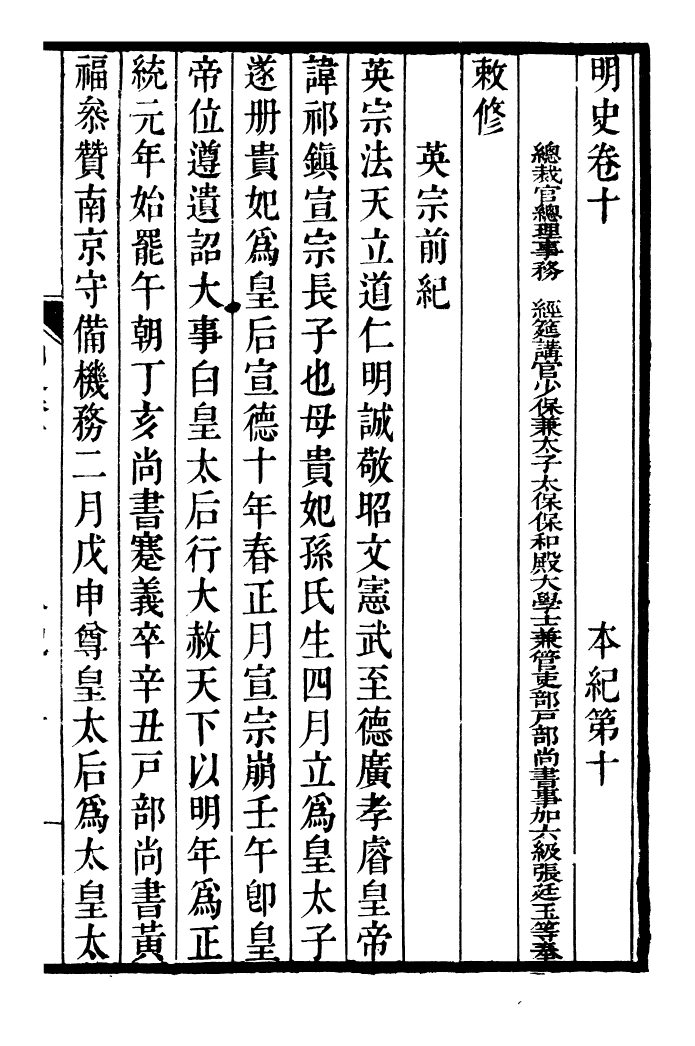 明史卷十　本紀第十
總裁官總理事務　經筵講官少保兼太子太保保和殿大學士兼管吏部戶部尚書事加六級張廷玉等奉
敕修
英宗前紀
英宗法天立道仁明誠敬昭文憲武至德廣孝睿皇帝
諱祁鎭宣宗長子也母貴妃孫氏生四月立爲皇太子
遂册貴妃爲皇后宣德十年春正月宣宗崩壬午卽皇
帝位遵遺詔大事白皇太后行大赦天下以明年爲正
統元年始罷午朝丁亥尚書蹇義卒辛丑戸部尚書黃
福叅贊南京守備機務二月戊申尊皇太后爲太皇太